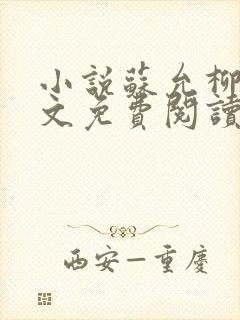 小説蘇允柳
文免費閱讀
西安—重慶